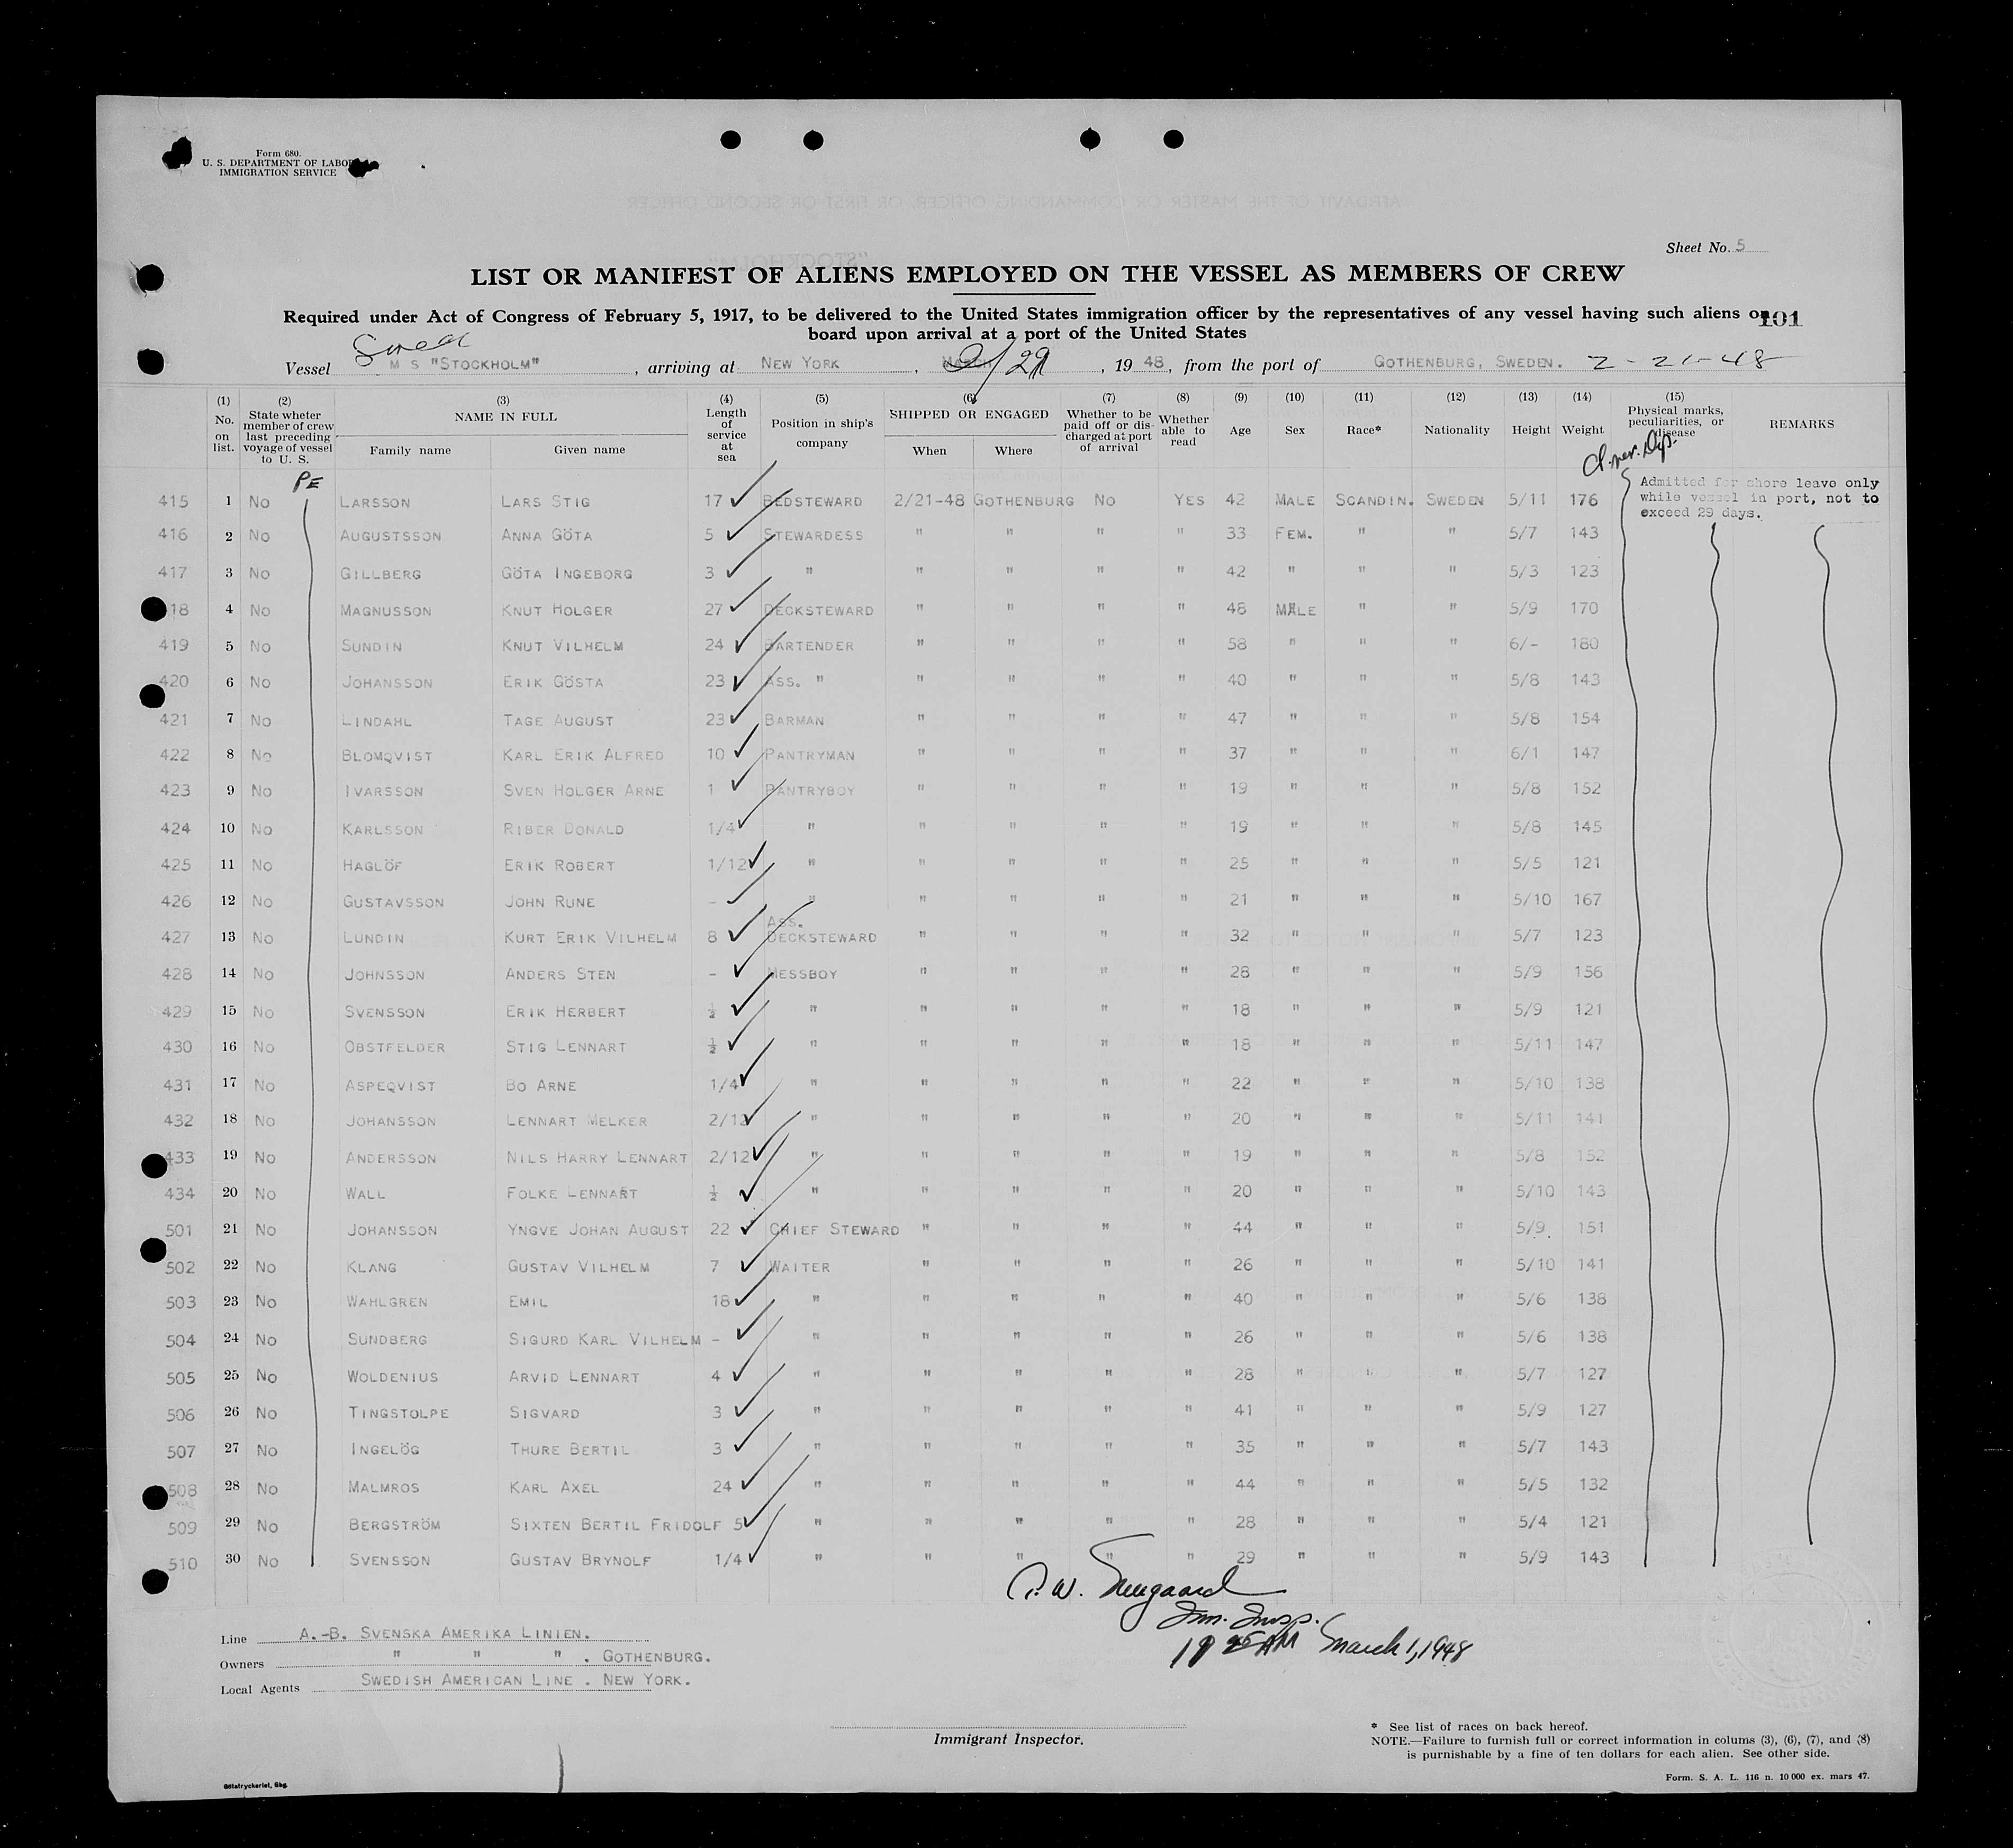 Form 680.
U. S. DEPARTMENT OF LABOR
IMMIGRATION SERVICE
Sheet No. 5
LIST OR MANIFEST OF ALIENS EMPLOYED ON THE VESSEL AS MEMBERS OF CREW
Required under Act of Congress of February 5, 1917, to be delivered to the United States immigration officer by the representatives of any vessel having such aliens on
101
board upon arrival at a port of the United States
Swed
Vessel M S "STOCKHOLM" , arriving at NEW YORK , 2/29 , 1948, from the port of GOTHENBURG, SWEDEN. 2-21-48
(1) No. on list. (2) State wheter member of crew last preceding voyage of vessel to U. S. (3) NAME IN FULL Family name Given name (4) Length of service at sea (5) Position in ship's company (6) SHIPPED OR ENGAGED When Where (7) Whether to be paid off or discharged at port of arrival (8) Whether able to read (9) Age (10) Sex (11) Race* (12) Nationality (13) Height (14) Weight (15) Physical marks, peculiarities, or disease REMARKS
PE
Admitted for shore leave only
while vessel in port, not to
exceed 29 days.
415 1 NO LARSSON LARS STIG 17 BEDSTEWARD 2/21-48 GOTHENBURG NO YES 42 MALE SCANDIN. SWEDEN 5/11 176
416 2 NO AUGUSTSSON ANNA GÖTA 5 STEWARDESS " " " " 33 FEM. " " 5/7 143
417 3 NO GILLBERG GÖTA INGEBORG 3 " " " " " 42 " " " 5/3 123
418 4 NO MAGNUSSON KNUT HOLGER 27 DECKSTEWARD " " " " 48 MALE " " 5/9 170
419 5 NO SUNDIN KNUT VILHELM 24 BARTENDER " " " " 58 " " " 6/- 180
420 6 NO JOHANSSON ERIK GÖSTA 23 ASS. " " " " " 40 " " " 5/8 143
421 7 NO LINDAHL TAGE AUGUST 23 BARMAN " " " " 47 " " " 5/8 154
422 8 NO BLOMQVIST KARL ERIK ALFRED 10 PANTRYMAN " " " " 37 " " " 6/1 147
423 9 NO IVARSSON SVEN HOLGER ARNE 1 PANTRYBOY " " " " 19 " " " 5/8 152
424 10 NO KARLSSON RIBER DONALD 1/4 " " " " " 19 " " " 5/8 145
425 11 NO HAGLÖF ERIK ROBERT 1/12 " " " " " 25 " " " 5/5 121
426 12 NO GUSTAVSSON JOHN RUNE - " " " " " 21 " " " 5/10 167
427 13 NO LUNDIN KURT ERIK VILHELM 8 ASS. DECKSTEWARD " " " " 32 " " " 5/7 123
428 14 NO JOHNSSON ANDERS STEN - MESSBOY " " " " 28 " " " 5/9 156
429 15 NO SVENSSON ERIK HERBERT ½ " " " " " 18 " " " 5/9 121
430 16 NO OBSTFELDER STIG LENNART ½ " " " " " 18 " " " 5/11 147
431 17 NO ASPEQVIST BO ARNE 1/4 " " " " " 22 " " " 5/10 138
432 18 NO JOHANSSON LENNART MELKER 2/12 " " " " " 20 " " " 5/11 141
433 19 NO ANDERSSON NILS HARRY LENNART 2/12 " " " " " 19 " " " 5/8 152
434 20 NO WALL FOLKE LENNART ½ " " " " " 20 " " " 5/10 143
501 21 NO JOHANSSON YNGVE JOHAN AUGUST 22 CHIEF STEWARD " " " " 44 " " " 5/9 151
502 22 NO KLANG GUSTAV VILHELM 7 WAITER " " " " 26 " " " 5/10 141
503 23 NO WAHLGREN EMIL 18 " " " " " 40 " " " 5/6 138
504 24 NO SUNDBERG SIGURD KARL VILHELM - " " " " " 26 " " " 5/6 138
505 25 NO WOLDENIUS ARVID LENNART 4 " " " " " 28 " " " 5/7 127
506 26 NO TINGSTOLPE SIGVARD 3 " " " " " 41 " " " 5/9 127
507 27 NO INGELÖG THURE BERTIL 3 " " " " " 35 " " " 5/7 143
508 28 NO MALMROS KARL AXEL 24 " " " " " 44 " " " 5/5 132
509 29 NO BERGSTRÖM SIXTEN BERTIL FRIDOLF 5 " " " " " 28 " " " 5/4 121
510 30 NO SVENSSON GUSTAV BRYNOLF 1/4 " " " " " 29 " " " 5/9 143
Imm. Insp.
March 1, 1948
Line A.-B. SVENSKA AMERIKA LINIEN.
Owners " " " . GOTHENBURG.
Local Agents SWEDISH AMERICAN LINE . NEW YORK.
Immigrant Inspector.
* See list of races on back hereof.
NOTE.—Failure to furnish full or correct information in colums (3), (6), (7), and (8)
is punishable by a fine of ten dollars for each alien. See other side.
Götatryckeriet, Gbg.
Form. S. A. L. 116 n. 10 000 ex. mars 47.